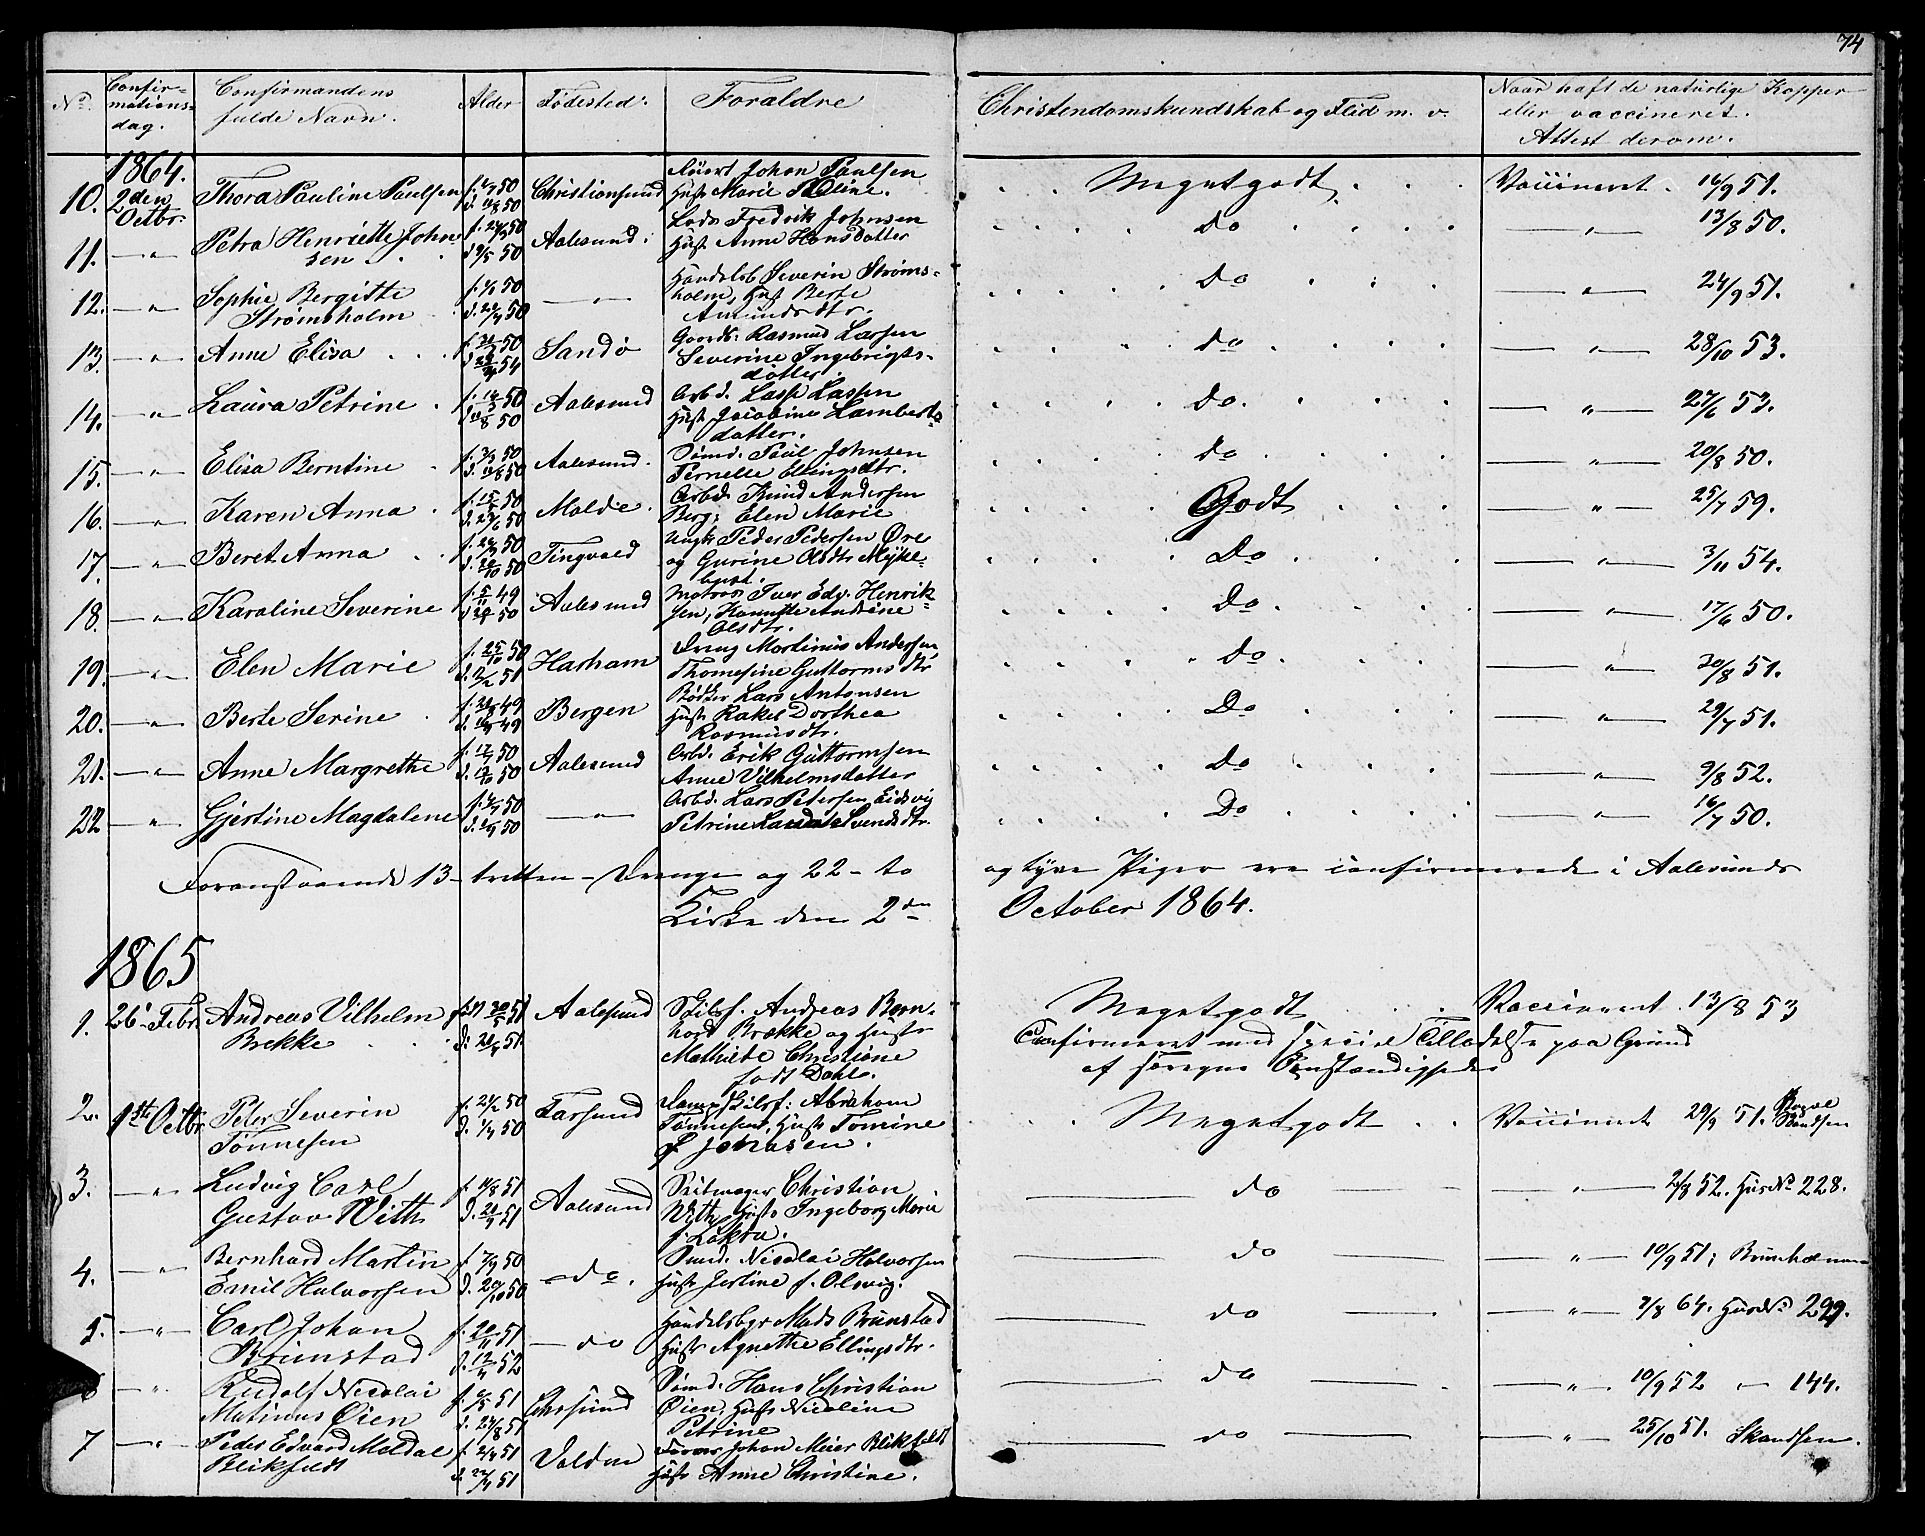 74
No. Confir-mations-dag. Confirmandens fulde Navn. Alder Fødested. Forældre Christendomskundskab og Flid m. v. Naar haft de naturlige Kopper eller vaccineret. Attest derom.
1864.
10. 2den Octbr. Thora Pauline Paulsen 50 50 Christiansund Johan Paulsen Hust. Marie Meget godt Vaccineret 16/9 51.
11. — " Petra Henriette Johnsen 50 50 Aalesund. Lods Fredrik Johnsen Hust. Anne Hansdatter do — " — 13/8 50.
12. — " Sophie Bergitte Strømsholm 50 50 — " — Handelsb. Severin Strømsholm, Hust. Berte Amundsdtr. do — " — 24/9 51.
13. — " Anne Elisa 50 54 Sandø Gaardb. Rasmus Larsen Severine Ingebrigtsdatter. do — " — 28/10 53.
14. — " Laura Petrine 50 50 Aalesund Arbd. Lasse Lassen Hust. Jacobine Lambertsdatter. do. — " — 27/6 53.
15. — " Elisa Berntine 50 50 Aalesund. Sømd. Paul Johnsen Pernelle Ellingsdtr. do — " — 20/8 50.
16. — " Karen Anna 50 50 Molde. Arbd. Knud Andersen Berg, Elen Marie Godt — " — 25/7 59.
17. — " Beret Anna 50 50 Tingvold Ungk. Peder Pedersen Øre og Gurine Olsdtr. Myklebust. Do — " — 3/11 54.
18. — " Karoline Severine 49 50 Aalesund Matros Iver Edv. Henriksen, Andrine Olsdtr. Do — " — 17/6 50.
19. — " Elen Marie 50 51 Harham Martinus Andersen, Thomesine Guttormsdtr do — " — 20/8 51.
20. — " Berte Serine 49 49 Bergen Bødker Lars Antonsen Hust. Rakel Dorthea Rasmusdtr. Do — " — 29/7 51.
21. — " Anne Margrethe 50 50 Aalesund Arbd. Erik Guttormsen Anne Vilhelmsdatter do — " — 9/8 52.
22 — " Gjertine Magdalene 50 50 — " — Arbd. Lars Petersen Eidsvig Petrine Svendsdtr. Do — " — 16/7 50.
Foranstaaende 13 - tretten - Drenge og 22 - to og tyve Piger ere confirmerede i Aalesunds
Kirke den 2den October 1864.
1865
1. 26' Febr. Andreas Vilhelm Brekke 51 51 Aalesund Skibsf. Andreas Bernhard Brekke og Hust. Mathilde Christiane født Dahl. Meget godt Vaccineret 13/8 53
Confirmeret med speciel Tilladelse paa Grund
af særegne Omstændigheder
2. 1ste Octbr. Peter Severin Tønnesen 50 50 Farsund Skibsf. Abraham Tønnesen, Hust. Tomine f. Jonasen. Meget godt Vaccineret 29/9 51.
3. — " Ludvig Carl Gustav With 51 51 Aalesund Christian With, Hust. Ingeborg Marie do — " — 2/8 52. Hus No 228.
4. — " Bernhard Martin Emil Halvorsen f. 7/9 50 d. 20/10 50 — do. Smed. Nicolai Halvorsen Hust. Jertine f. Olsvig. do — " — 10/9 51,
5. — " Carl Johan Brunstad 51 52 — do Handelsbgr. Mads Brunstad Hust. Agnethe Ellingsdtr. do — " — 7/8 64. Hus No 299.
6 — " Rudolf Nicolai Matinus Øien 51 51 Sømd. Hans Christian Øien, Hust. Nicoline Petrine do — " — 10/9 52 — 144.
7 — " Peder Edvard Moldal Blikfeldt 51 51 Volden Johan Meier Blikfeldt Hust. Anne Christine. do — " — 25/10 51. Skandsen.